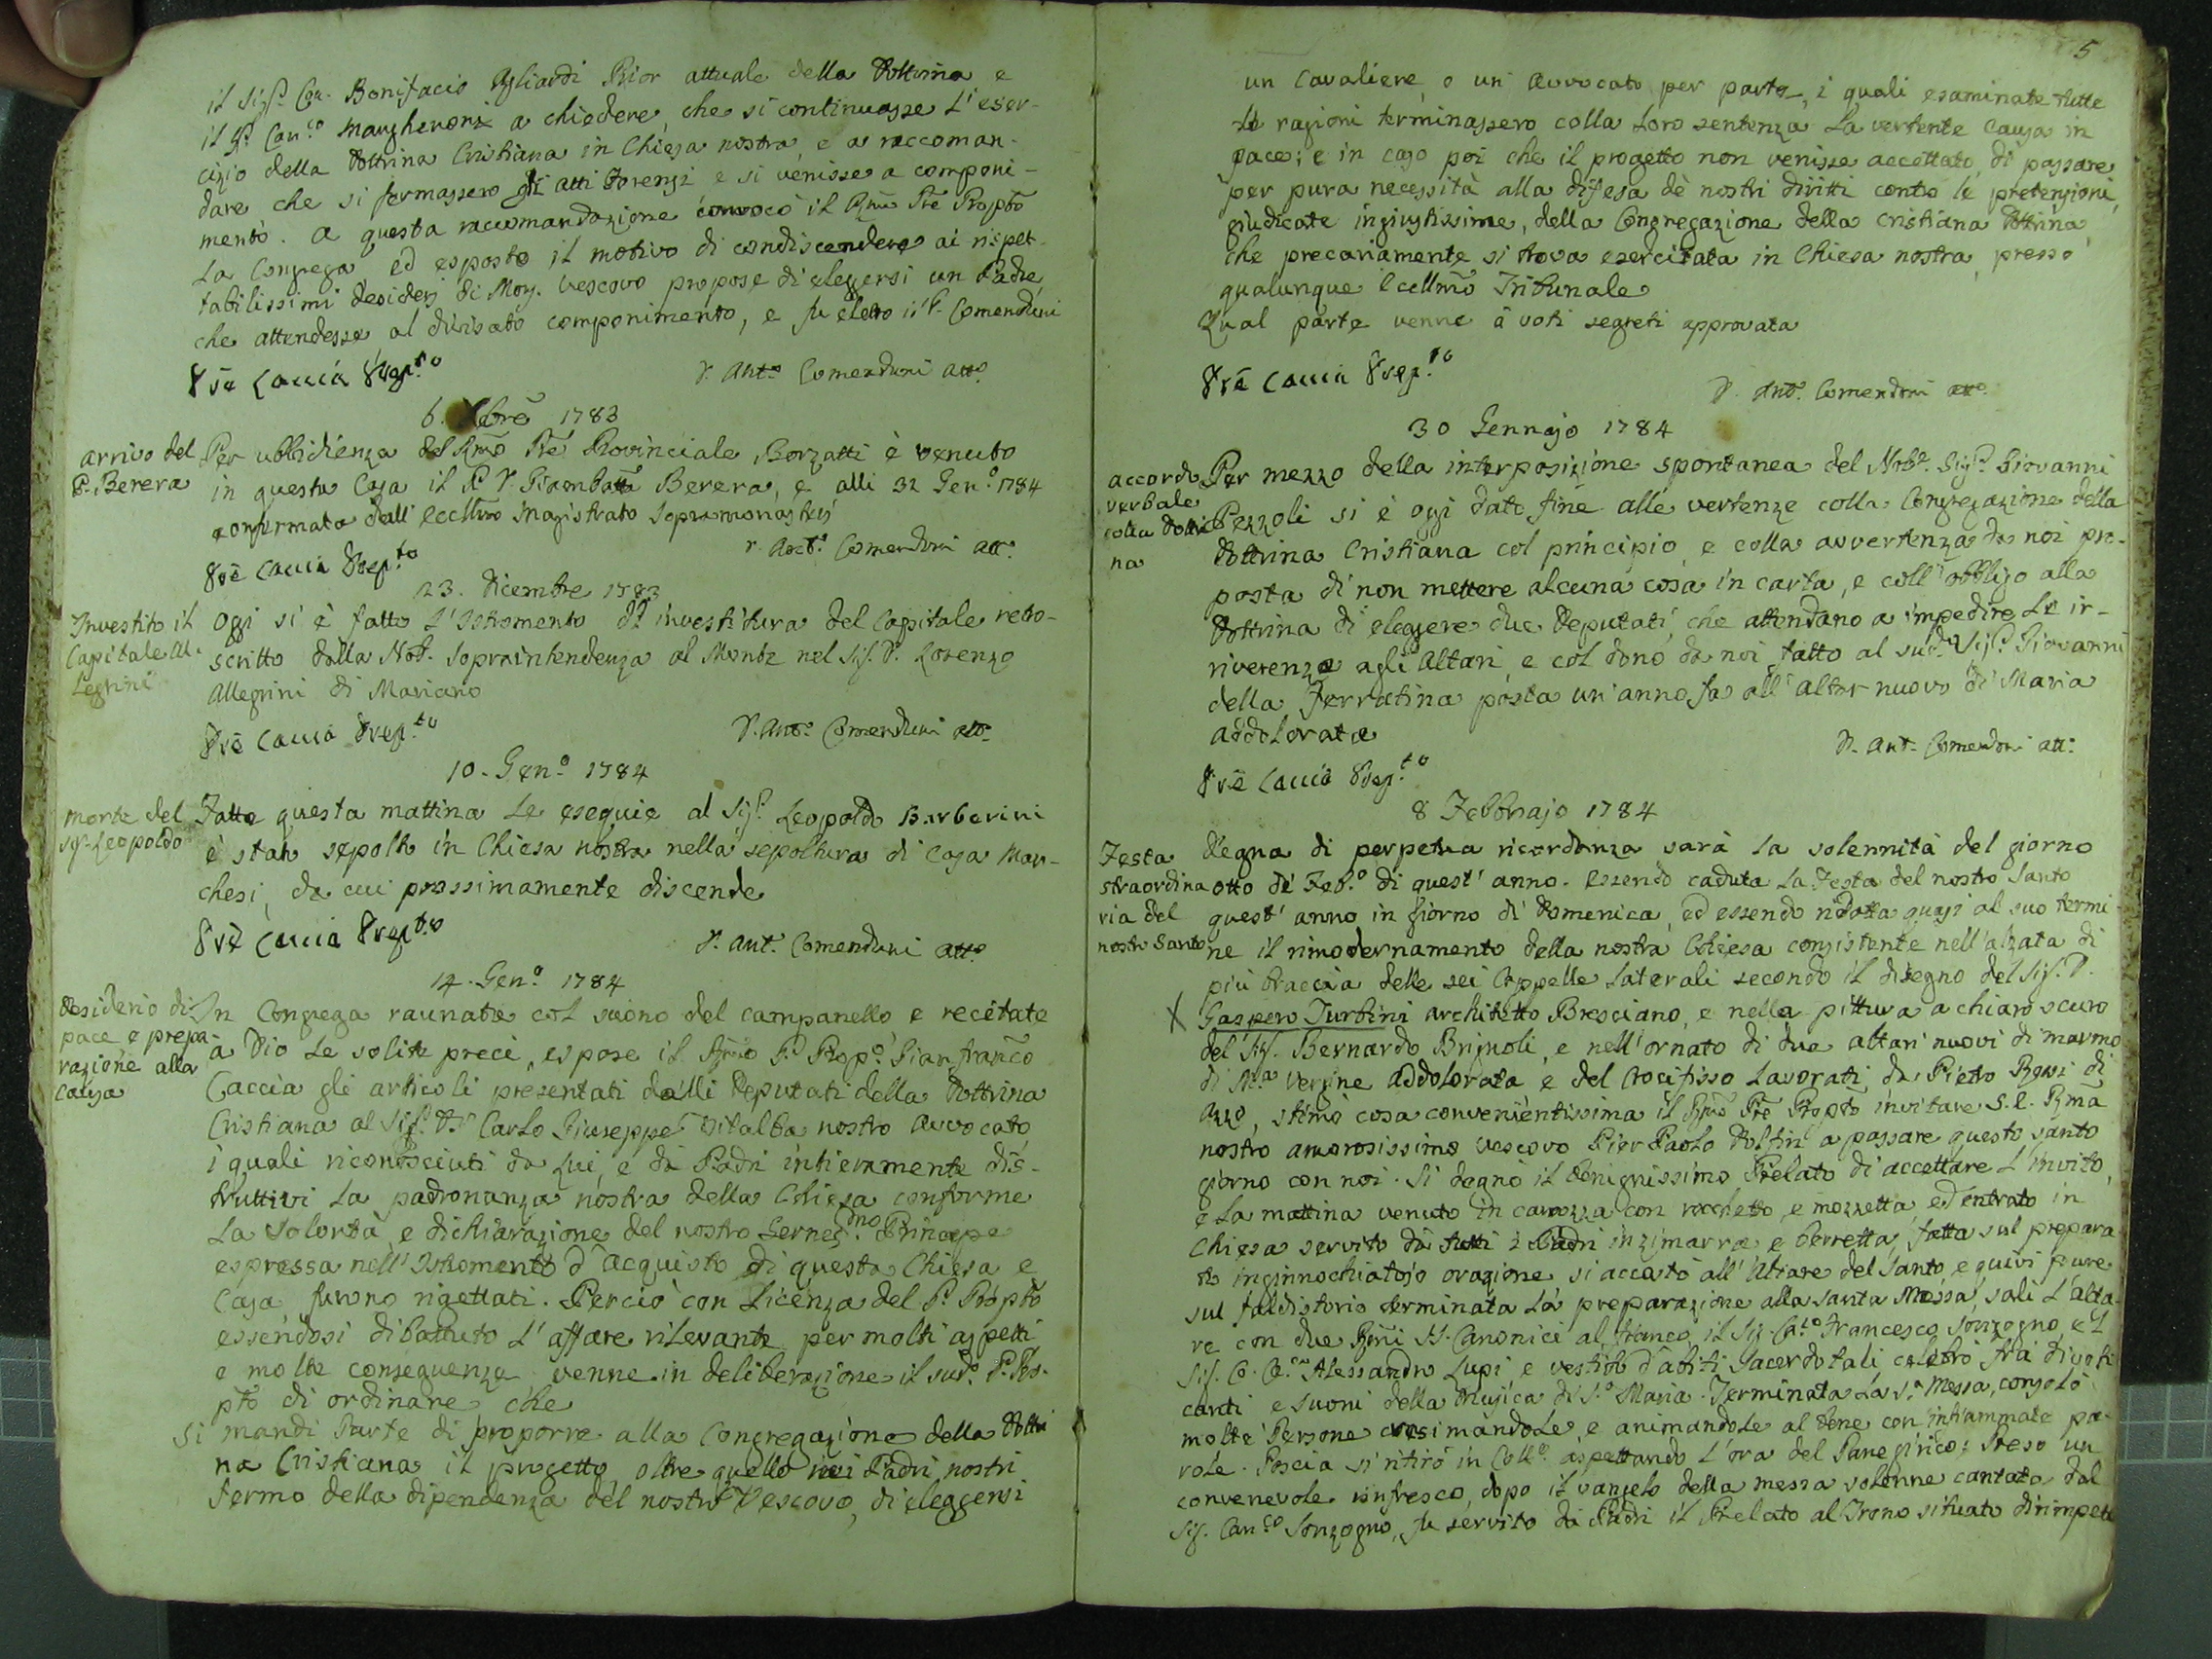 il Sig.r Con. Bonifacio Agliardi Prior attuale della Dottrina e
il Sr. Can.co Margheroni a chiedere, che si continuasse l'eser-
cizio della Dottrina Cristiana in Chiesa nostra, e a raccoman-
dare che si fermassero gli atti Forensi e si venisse a componi-
mento. A questa raccomandazione convocò il Rmo Pre Propto
la Congrega, ed esposto il motivo di condiscendere ai rispet-
tabilissimi desiderj di Mons. Vescovo propose di eleggersi un Padre,
che attendesse al divisato componimento, e fu eletto il P. Comenduni
Pre Caccia Prep.to
D. Ant.o Comenduni att.o
6. Xbre 1783
Arrivo del
P. Berera
Per ubbidienza del Rmo Pre Provinciale Borzatti è venuto
in questa Casa il P. D. Giambatta Berera, e alli 31 Gen.o 1784
confermato dall' Eccellmo Magistrato Sopramonasterj
Pre Caccia Prep.to
D. Ant.o Comenduni att.o
23. Dicembre 1783
Investito il
Capitale Al-
legrini
Oggi si è fatto l'Istromento di investitura del Capitale retro-
scritto dalla Nob. Sopraintendenza al Monte nel Sig. D. Lorenzo
Allegrini di Mariano
Pre Caccia Prep.to
D. Ant.o Comenduni att.o
10. Gen.o 1784
Morte del
Sig. Leopoldo
Fatte questa mattina le esequie al Sig.r Leopoldo Barberini
è stato sepolto in Chiesa nostra nella sepoltura di Casa Mar-
chesi, da cui prossimamente discende
Pre Caccia Prep.to
D. Ant. Comenduni att.o
14. Gen.o 1784
Desiderio di
pace e prepa-
razione alla
causa
In Congrega raunata col suono del campanello, e recitate
a Dio le solite preci, espose il Rmo P. Prop.o Gianfranco
Caccia gli articoli presentati dalli Deputati della Dottrina
Cristiana al Sig.r Dr. Carlo Giuseppe Vitalba nostro Avvocato,
i quali riconosciuti da lui, e da Padri intieramente dis-
truttivi la padronanza nostra della Chiesa conforme
la volontà, e dichiarazione del nostro Serenis.mo Principe
espressa nell' Istromento d'acquisto di questa Chiesa e
Casa furono rigettati. Perciò con licenza del P. Propto
essendosi dibattuto l'affare rilevante per molti aspetti
e molte conseguenze venne in deliberazione il sud.o P. Pro-
pto di ordinare che
Si mandi Parte di proporre alla Congregazione della Dottri
na Cristiana il progetto, oltre quello noi Padri nostri
fermo della dipendenza del nostro Vescovo, di eleggersi
5
un Cavaliere, o un Avvocato per parte, i quali esaminate tutte
le ragioni terminassero colla loro sentenza la vertente causa in
pace; e in caso poi che il progetto non venisse accettato, di passare
per pura necessità alla difesa de' nostri diritti contro le pretensioni,
giudicate ingiustissime, della Congregazione della Cristiana Dottrina,
che precariamente si trova esercitata in Chiesa nostra, presso
qualunque Eccellmo Tribunale
Qual parte venne a voti segreti approvata
Pre Caccia Prep.to
D. Ant.o Comenduni att.o
30 Gennajo 1784
accordo
verbale
colla Dottri
na
Per mezzo della interposizione spontanea del Nob.e Sig.r Giovanni
Pezzoli si è oggi dato fine alle vertenze colla Congregazione della
Dottrina Cristiana col principio, e colla avvertenza da noi pro-
posta di non mettere alcuna cosa in carta, e coll'obbligo alla
Dottrina di eleggere due Deputati, che attendano a impedire le ir-
riverenze agli Altari, e col dono da noi fatto al sud.o Sig.r Giovanni
della Ferratina posta un'anno fa all'altar nuovo di Maria
addolorata
Pre Caccia Prep.to
D. Ant. Comenduni att.o
8 Febbrajo 1784
Festa
straordina
ria del
nostro Santo
Degna di perpetua ricordanza sarà la solennità del giorno
otto di Feb.o di quest'anno. Essendo caduta la Festa del nostro Santo
quest'anno in giorno di Domenica, ed essendo ridotta quasi al suo termi
ne il rimodernamento della nostra Chiesa consistente nell'alzata di
più braccia delle sei Cappelle laterali secondo il disegno del Sig. D.
X Gaspero Turbini Architetto Bresciano, e nella pittura a chiaro scuro
del Sig. Bernardo Brignoli, e nell'ornato di due altari nuovi di marmo
di M.a Vergine Addolorata e del Crocifisso lavorati da Pietro di
stimò cosa convenientissima il Rmo Pre Propto invitare S. E. Rma
nostro amorosissimo Vescovo Pier Paolo Dolfin a passare questo santo
giorno con noi. Si degnò il benignissimo Prelato di accettare l'invito,
e la mattina venuto in carozza con rocchetto, e mozzetta ed entrato in
Chiesa servito da tutti i Padri in zimarra e berretta, fatta sul prepara
to inginocchiatojo orazione si accostò all'Altare del Santo, e quivi
sul faldistorio terminata la preparazione alla santa Messa, salì l'alta-
re con due Rmi SS. Canonici al fianco, il Sig. Ca.co Francesco Sonzogno, e'l
Sig. Co. Ca.co Alessandro Lupi, e vestito d'abiti Sacerdotali, celebrò fra divoti
canti e suoni della Musica di S.a Maria. Terminata la S.a Messa, consolò
molte Persone cresimandole, e animandole al bene con infiammate pa-
role. Poscia si ritirò in Coll.o aspettando l'ora del Panegirico; Preso un
convenevole rinfresco, dopo il vangelo della messa solenne cantata dal
Sig. Can.co Sonzogno, fu servito da Padri il Prelato al Trono situato dirimpett